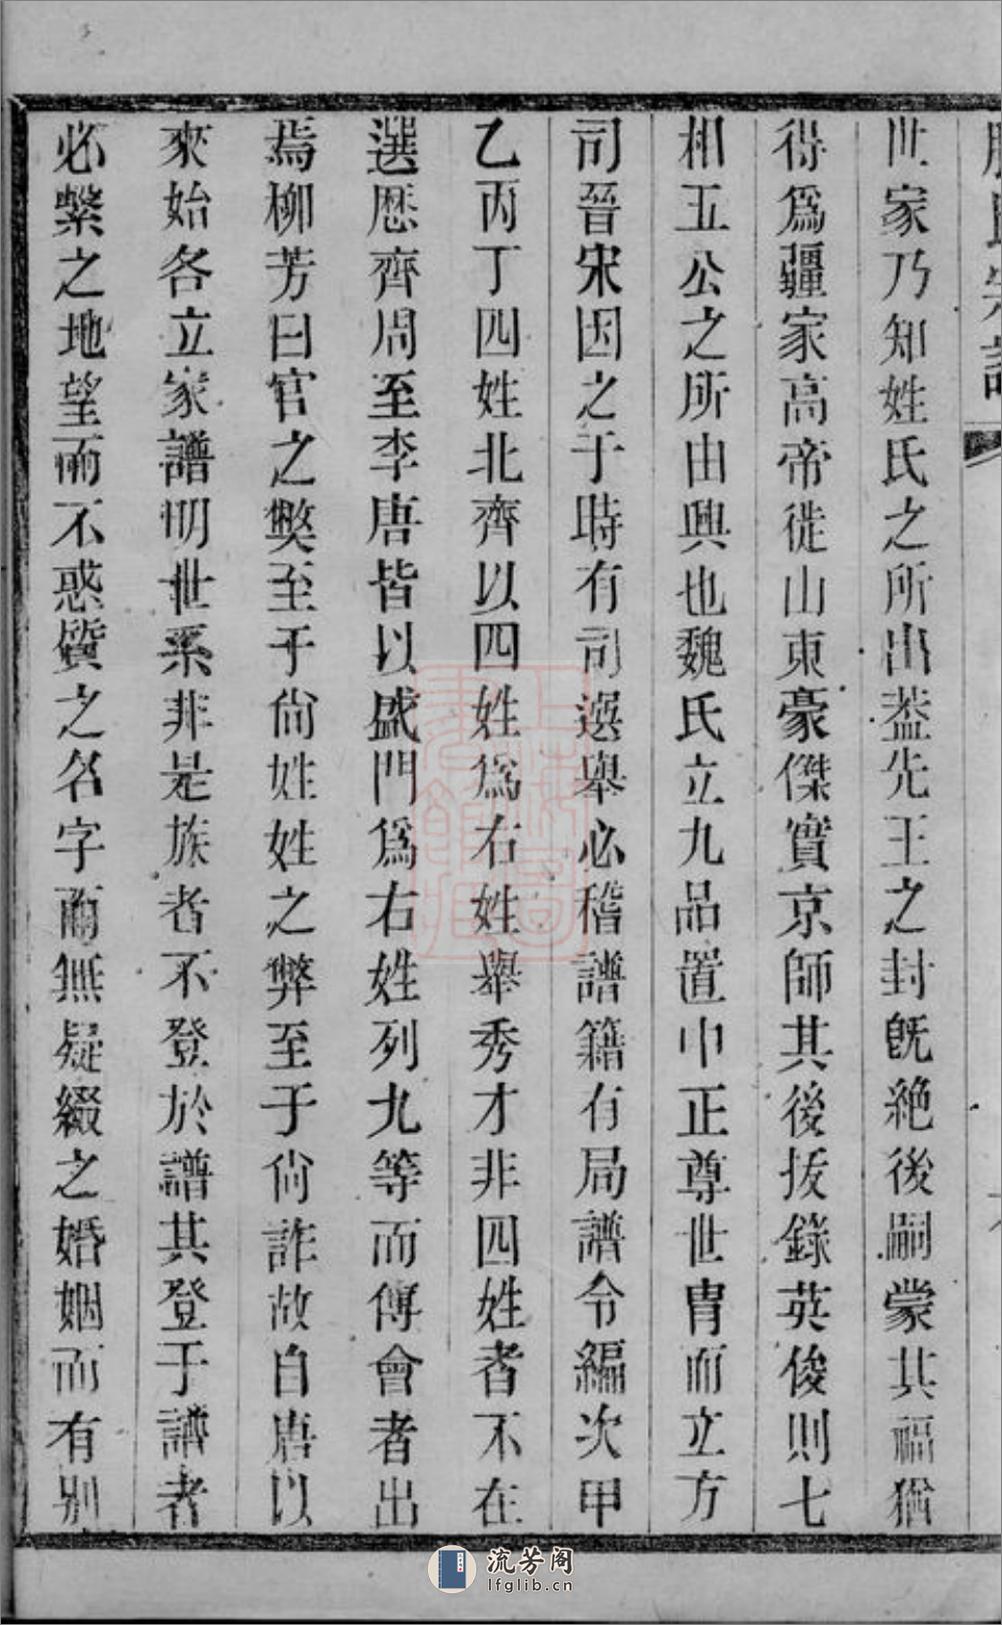 世家乃知姓氏之所出葢先王之封旣絶後嗣蒙其福猶
得爲疆家高帝徙山東豪傑實京師其後拔錄英俊則七
相五公之所由興也魏氏立九品置中正尊世胄而立方
司晉宋因之于時有司選舉必稽譜籍有局譜令編次甲
乙丙丁四姓北齊以四姓爲右姓舉秀才非四姓者不在
選歷齊周至李唐皆以盛門爲右姓列九等而傅會者出
焉柳芳曰官之獘至于尙姓姓之弊至于尙詐故自唐以
來始各立家譜明世系非是族者不登於譜其登于譜者
必繫之地望而不惑質之名字而無疑綴之婚姻而有別
流芳阁
lfglib.cn